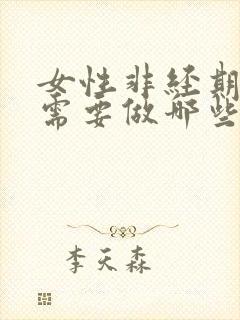 女性非经期
需要做哪些
李天森